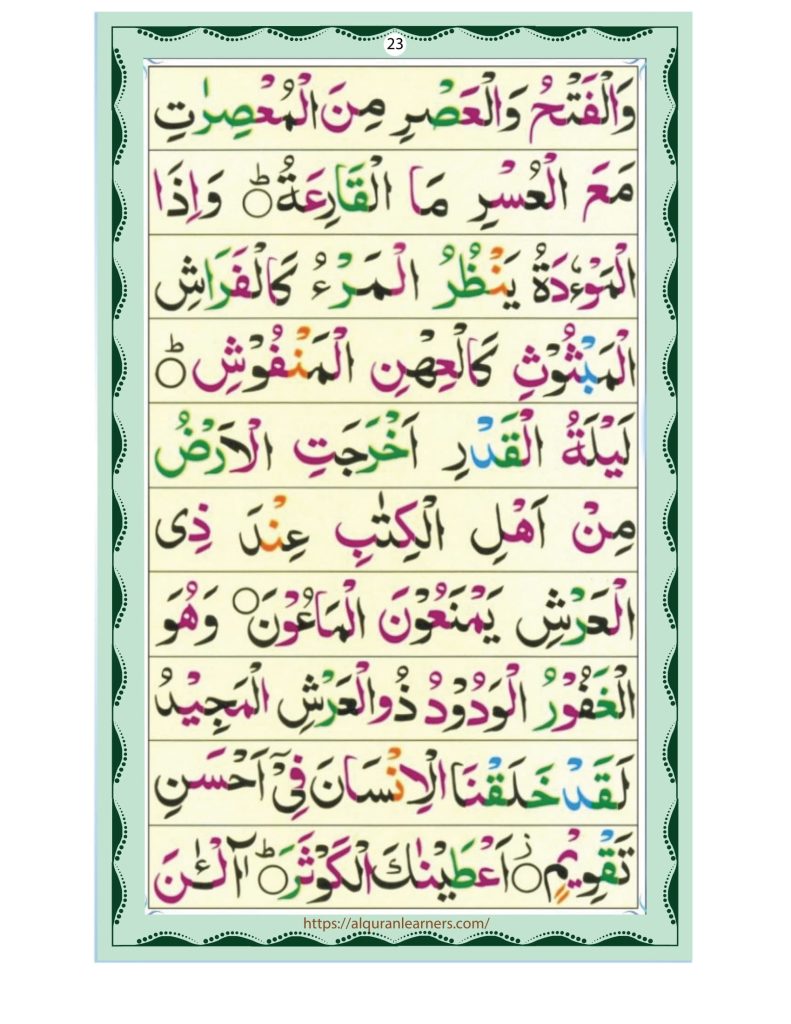 23
وَالْفَتْحُ وَالْعَصْرِ مِنَ الْمُعْصِرٰتِ
مَعَ الْعُسْرِ مَا الْقَارِعَةُ ۝ؕ وَاِذَا
الْمَوْءٗدَةُ يَنْظُرُ الْمَرْءُ كَالْفَرَاشِ
الْمَبْثُوْثِ كَالْعِهْنِ الْمَنْفُوْشِ ۝ؕ
لَيْلَةُ الْقَدْرِ اَخْرَجَتِ الْاَرْضُ
مِنْ اَهْلِ الْكِتٰبِ عِنْدَ ذِى
الْعَرْشِ يَمْنَعُوْنَ الْمَاعُوْنَ ۝ وَهُوَ
الْغَفُوْرُ الْوَدُوْدُ ذُوالْعَرْشِ الْمَجِيْدُ
لَقَدْ خَلَقْنَا الْاِنْسَانَ فِىْٓ اَحْسَنِ
تَقْوِيْمٍ ۝ز اَعْطَيْنٰكَ الْكَوْثَرَ ۝ؕ آٰلْـٰٔنَ
https://alquranlearners.com/